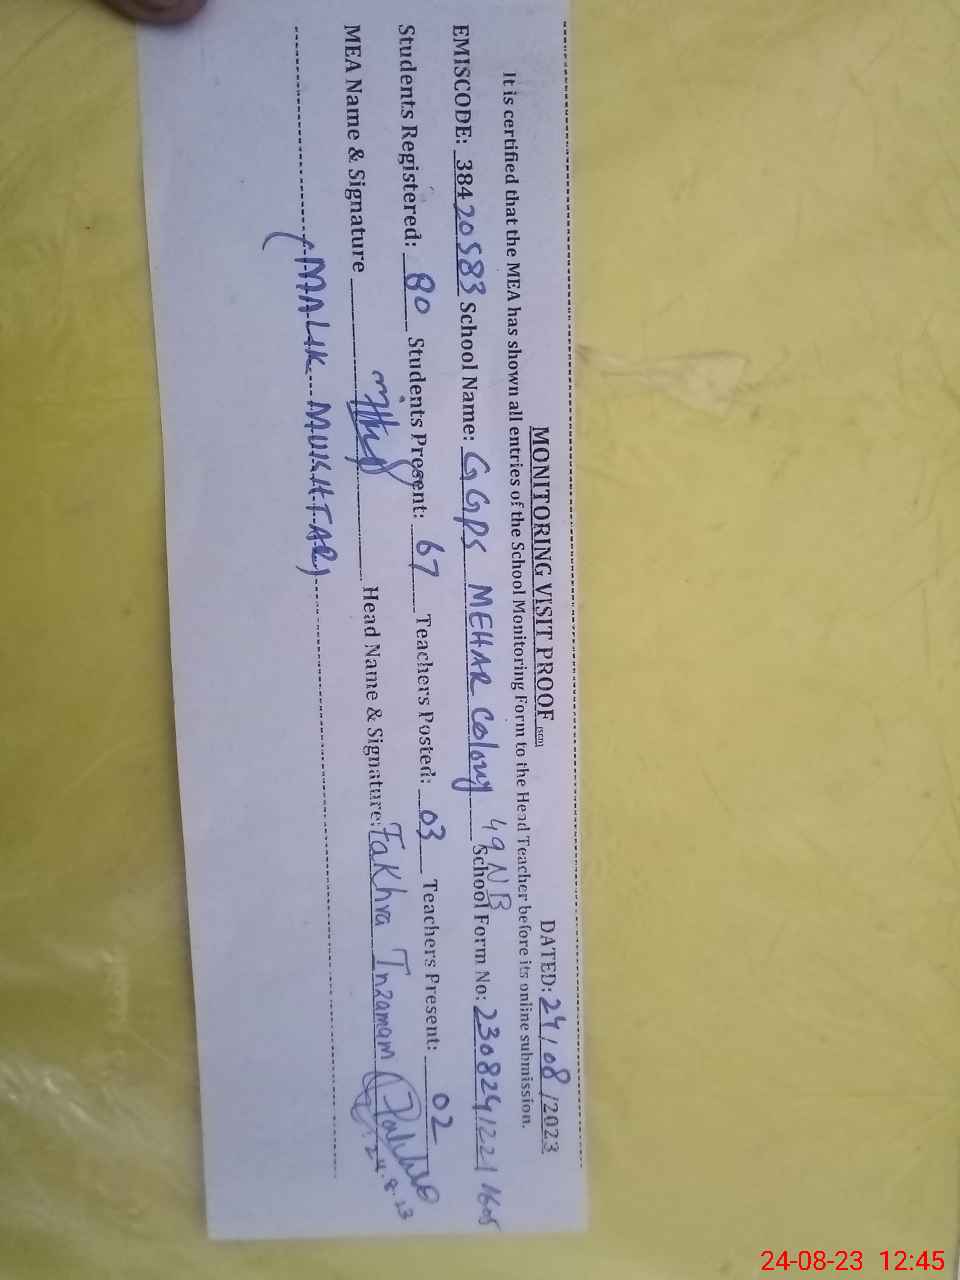 MONITORING VISIT PROOF (SED) DATED: 24/08/2023
It is certified that the MEA has shown all entries of the School Monitoring Form to the Head Teacher before its online submission.
49 NB
EMISCODE: 38420583 School Name: GGPS MEHAR Colony School Form No: 2308241221 1605
Students Registered: 80 Students Present: 67 Teachers Posted: 03 Teachers Present: 02
MEA Name & Signature Head Name & Signature: Fakhra Inzamam
24.8.23
(MALIK MUKHTAR)
24-08-23 12:45